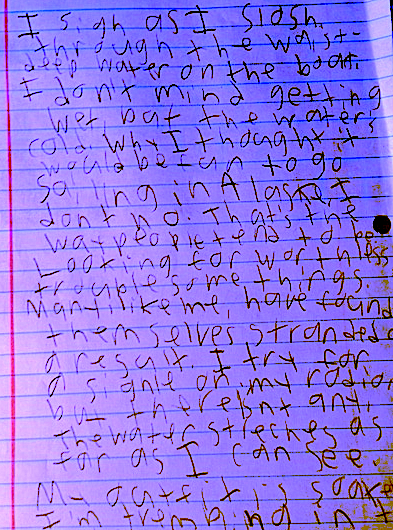 I sigh as I slosh
through the waist-
deep water on the boat.
I don't mind getting
wet, but the water's
cold. Why I thought it
would be fun to go
sailing in Alaska, I
don't no. That's the
way people tend to be.
Looking for worthless
troublesome things.
Many, like me, have found
themselves stranded
a result. I try for
a signle on my radio,
but there isnt any.
The water streches as
far as I can see
My outfit is soake
I'm trembling in t